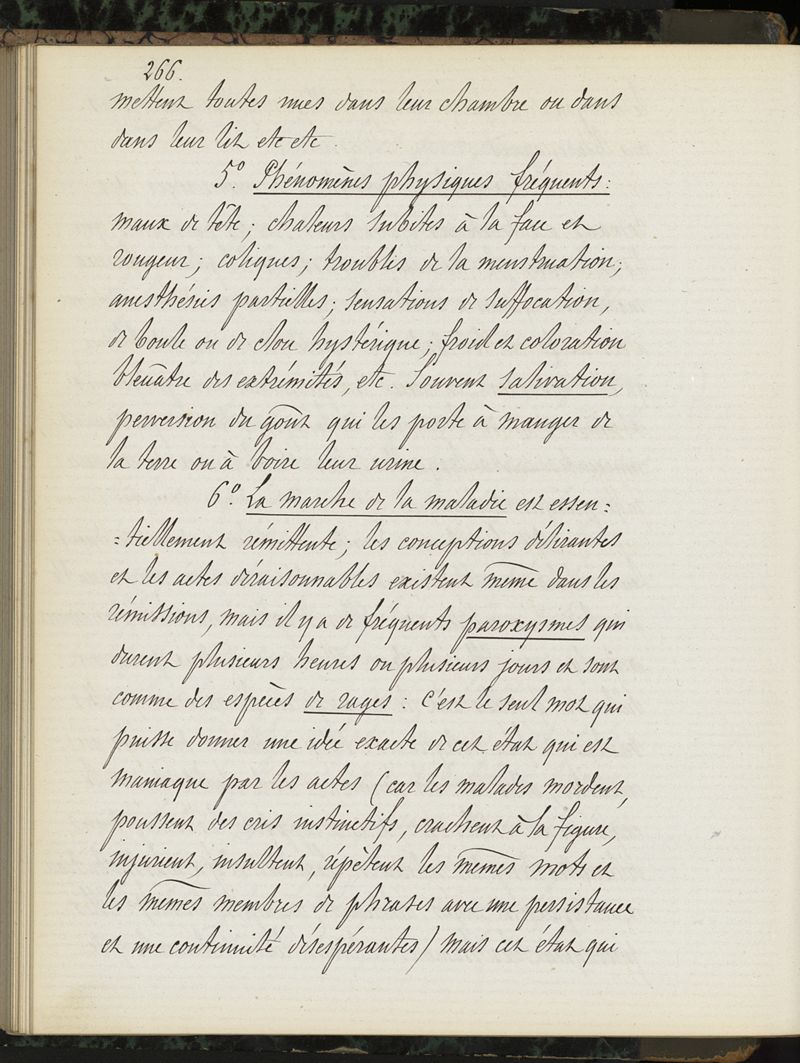 266.
mettent toutes nues dans leur chambre ou dans
dans leur lit etc etc.
5°. Phénomènes physiques fréquents:
maux de tête; chaleurs subites à la face et
rougeur; coliques; troubles de la menstruation;
anesthésies partielles; sensations de suffocation,
de boule ou de clou hystérique; froid et coloration
bleuâtre des extrémités, etc. Souvent salivation,
perversion du goût qui les porte à manger de
la terre ou à boire leur urine.
6°. La marche de la maladie est essen=
=tiellement rémittente; les conceptions délirantes
et les actes déraisonnables existent même dans les
rémissions, mais il y a de fréquents paroxysmes qui
durent plusieurs heures ou plusieurs jours et sont
comme des espèces de rages: c'est le seul mot qui
puisse donner une idée exacte de cet état qui est
maniaque par les actes (car les malades mordent,
poussent des cris instinctifs, crachent à la figure,
injurient, insultent, répètent les mêmes mots et
les mêmes membres de phrases avec une persistance
et une continuité désespérantes) mais cet état qui